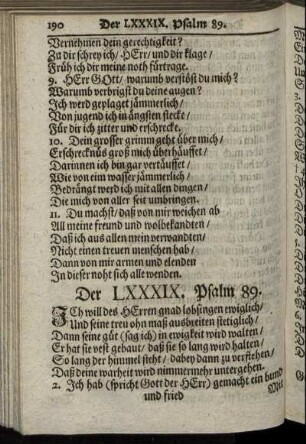 190 Der LXXXIX. Psalm 89.
Vernehmen dein gerechtigkeit?
Zu dir schrey ich/ HErr/ und dir klage/
Früh ich dir meine noth fürtrage.
9. HErr GOtt/ warumb verstößt du mich?
Warumb verbirgst du deine augen?
Ich werd geplaget jämmerlich/
Von jugend ich in ängsten stecke/
Für dir ich zitter und erschrecke.
10. Dein grosser grimm geht über mich/
Erschrecknüs groß mich überhäuffet/
Darinnen ich bin gar vertäuffet/
Wie von ein wasser jämmerlich/
Bedrängt werd ich mit allen dingen/
Die mich von aller seit umbringen.
11. Du machst/ daß von mir weichen ab
All meine freund und wolbekandten/
Daß ich aus allen mein verwandten/
Nicht einen treuen menschen hab/
Dann von mir armen und elenden
In dieser noht sich alle wenden.
Der LXXXIX. Psalm 89.
ICh will des HErren gnad lobsingen ewiglich/
Und seine treu ohn maß ausbreiten stetiglich/
Dann seine güt (sag ich) in ewigkeit wird walten/
Er hat sie vest gebaut/ daß sie so lang wird halten/
So lang der himmel steht/ dabey dann zu verstehen/
Daß deine warheit wird nimmermehr untergehen.
2. Ich hab (spricht Gott der HErr) gemacht ein bund
und fried